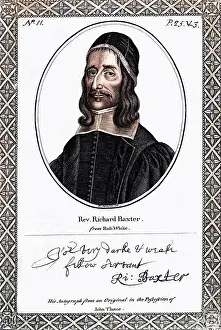 No. 11.
P. 25. V. 3.
Rev. Richard Baxter.
from Rob.t White.
Yo.r very darke & weak
fellow servant
Ri: Baxter
His Autograph from an Original in the Possession of
John Thane.